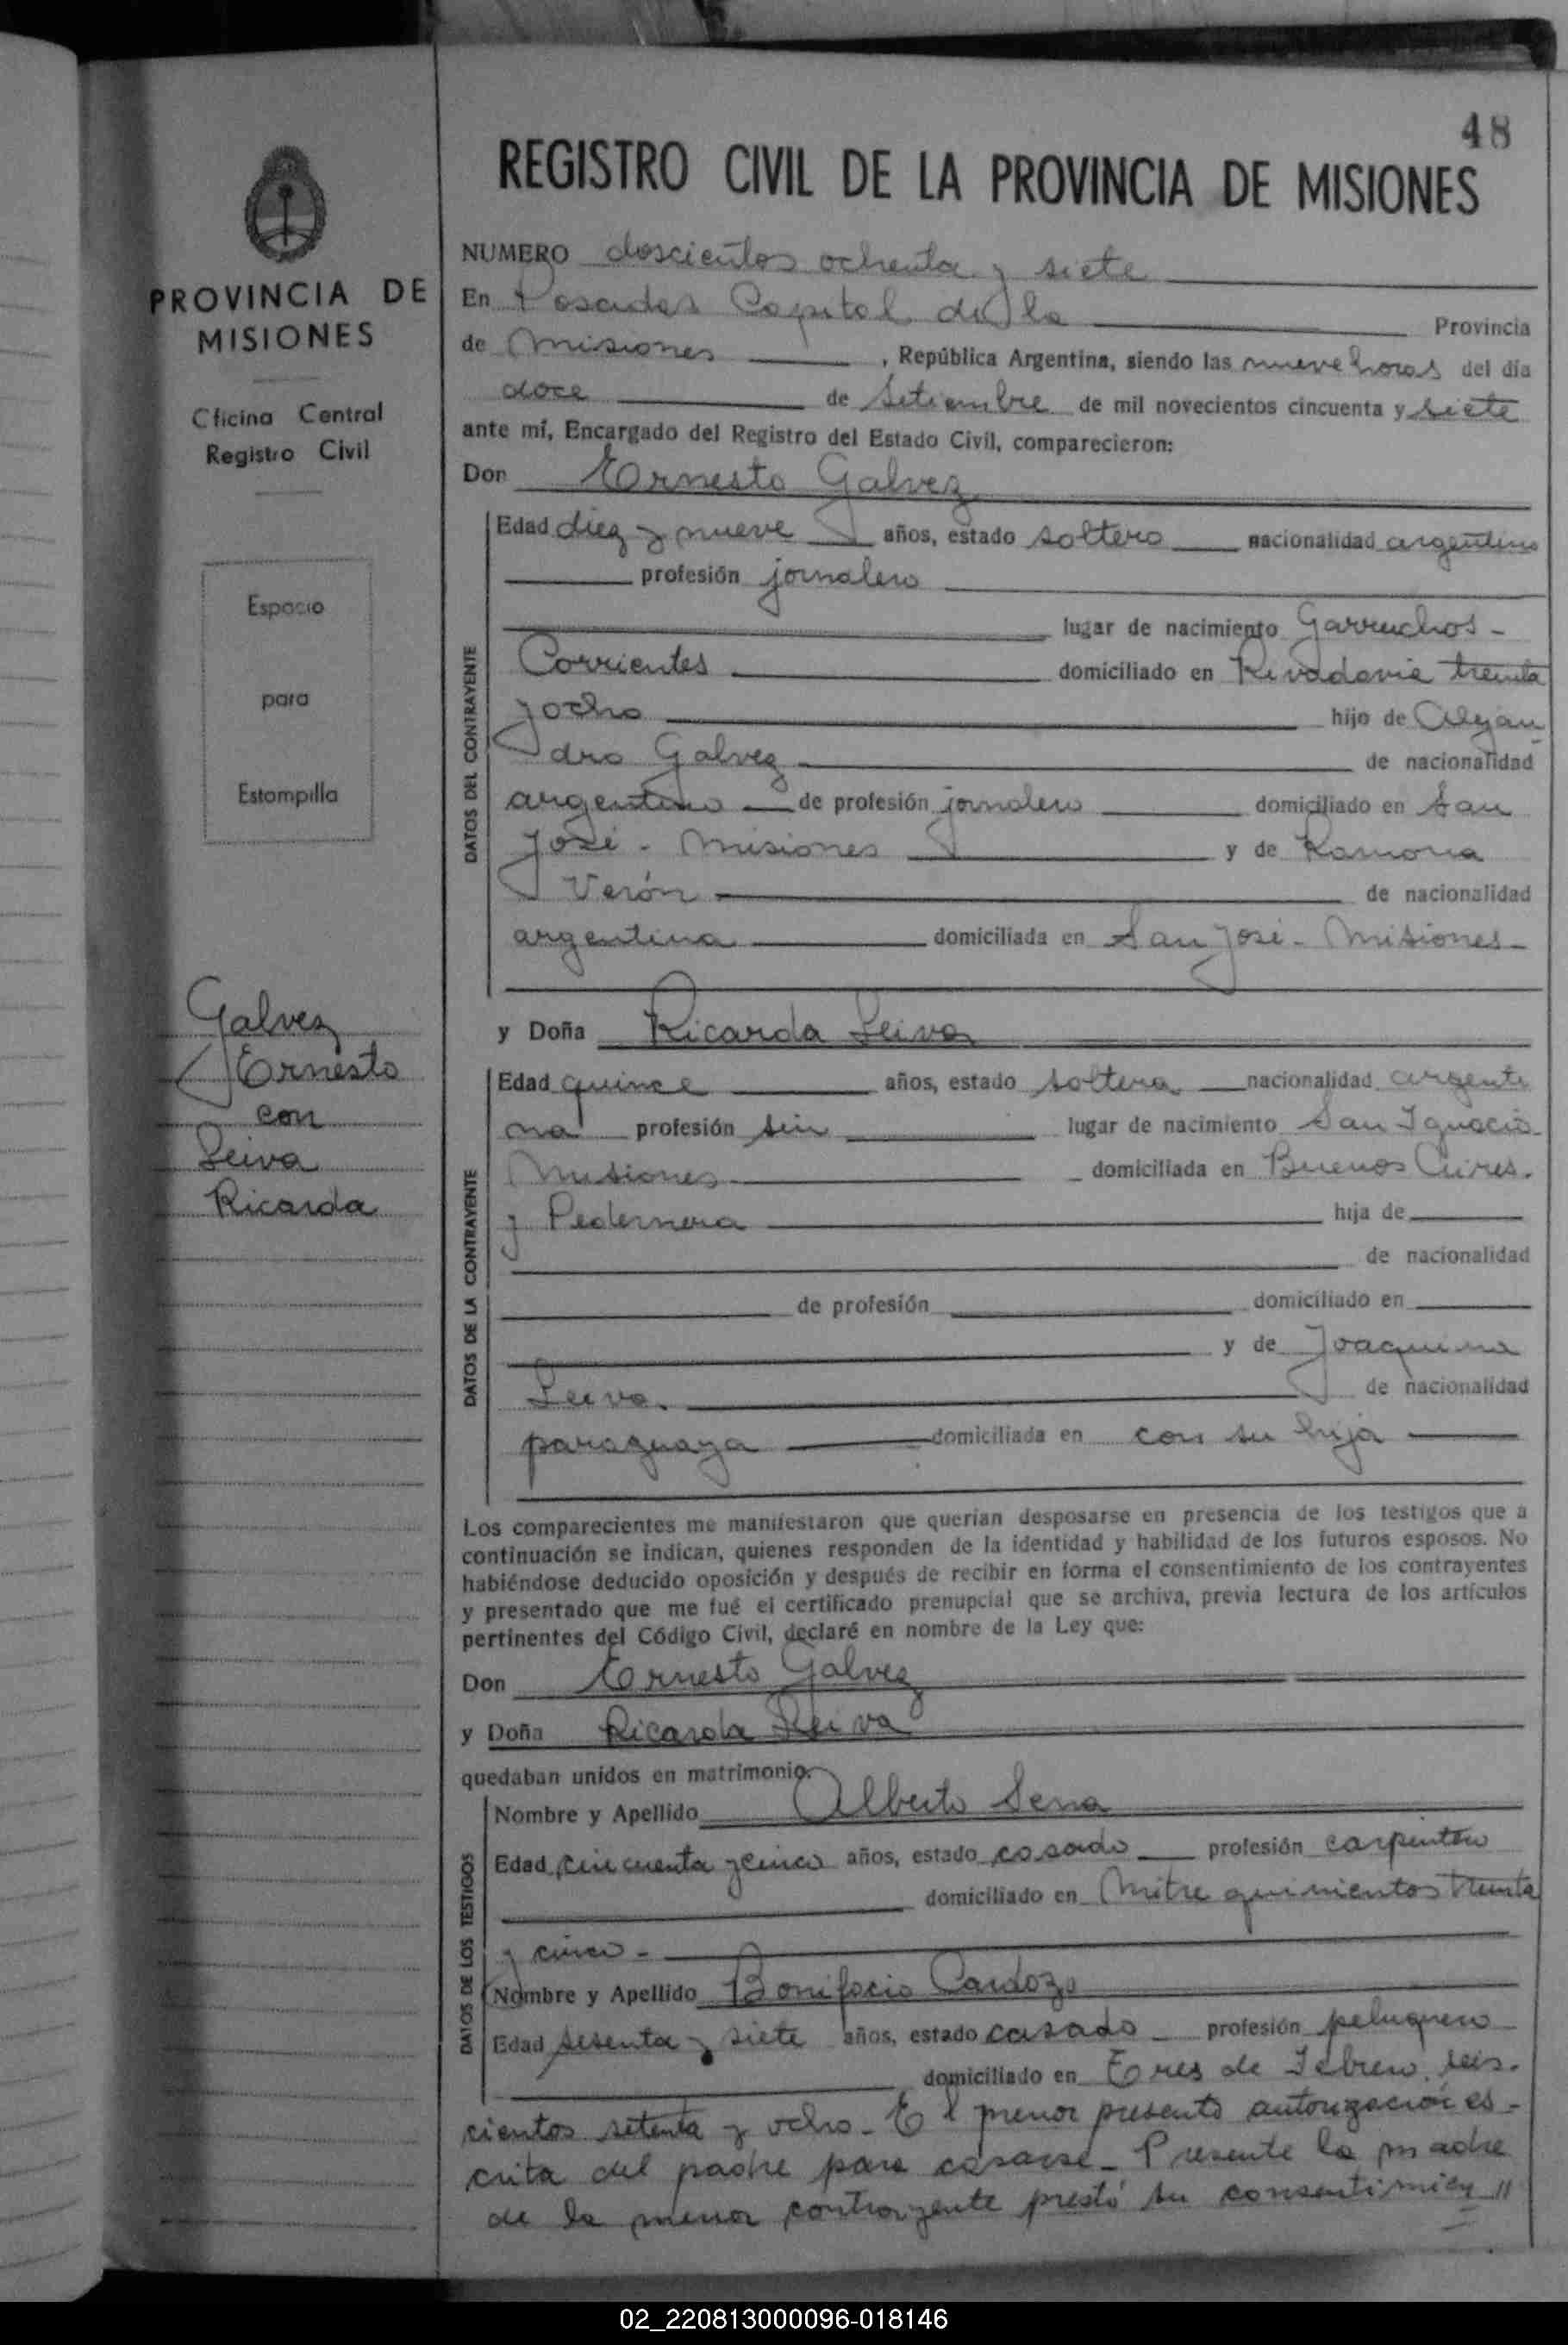 48
REGISTRO CIVIL DE LA PROVINCIA DE MISIONES
PROVINCIA DE
MISIONES
Oficina Central
Registro Civil
Espacio
para
Estampilla
Galvez
Ernesto
con
Leiva
Ricarda
NUMERO doscientos ochenta y siete
En Posadas Capital de la Provincia
de Misiones , República Argentina, siendo las nueve horas del día
doce de Setiembre de mil novecientos cincuenta y siete
ante mí, Encargado del Registro del Estado Civil, comparecieron:
Don Ernesto Galvez
DATOS DEL CONTRAYENTE
Edad diez y nueve años, estado soltero nacionalidad argentino
profesión jornalero
lugar de nacimiento Garruchos -
Corrientes domiciliado en Rivadavia treinta
y ocho hijo de Alejan
dro Galvez de nacionalidad
argentino de profesión jornalero domiciliado en San
José - Misiones y de Ramona
Verón de nacionalidad
argentina domiciliada en San José - Misiones -
y Doña Ricarda Leiva
DATOS DE LA CONTRAYENTE
Edad quince años, estado soltera nacionalidad argenti
na profesión sin lugar de nacimiento San Ignacio
Misiones domiciliada en Buenos Aires.
y Pedernera hija de
de nacionalidad
de profesión domiciliado en
y de Joaquina
Leiva. de nacionalidad
paraguaya domiciliada en con su hija
Los comparecientes me manifestaron que querían desposarse en presencia de los testigos que a
continuación se indican, quienes responden de la identidad y habilidad de los futuros esposos. No
habiéndose deducido oposición y después de recibir en forma el consentimiento de los contrayentes
y presentado que me fué el certificado prenupcial que se archiva, previa lectura de los artículos
pertinentes del Código Civil, declaré en nombre de la Ley que:
Don Ernesto Galvez
y Doña Ricarda Leiva
quedaban unidos en matrimonio.
DATOS DE LOS TESTIGOS
Nombre y Apellido Alberto Sena
Edad cincuenta y cinco años, estado casado profesión carpintero
domiciliado en Mitre quinientos treinta
y cinco -
Nombre y Apellido Bonifacio Cardozo
Edad sesenta y siete años, estado casado profesión peluquero
domiciliado en Tres de Febrero seis-
cientos setenta y ocho - El menor presentó autorización es-
crita del padre para casarse - Presente la madre
de la menor contrayente prestó su consentimien //
02_220813000096-018146